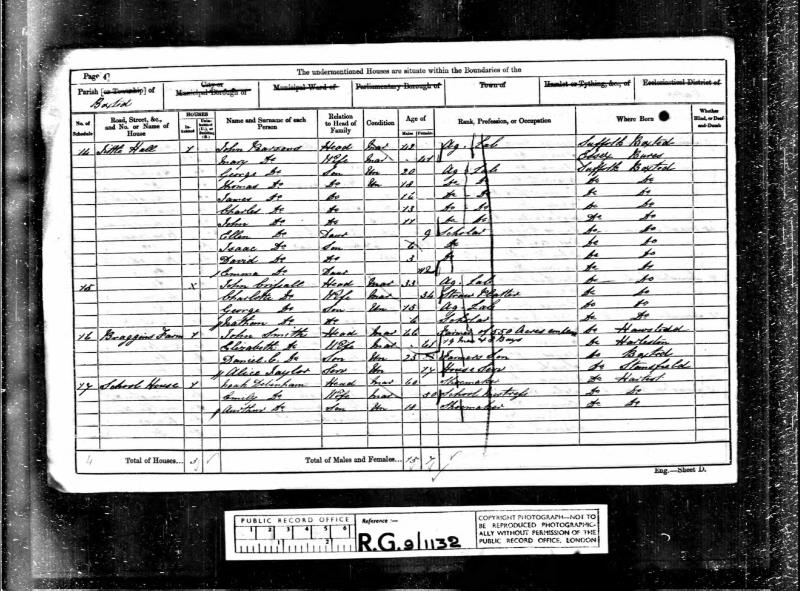 The undermentioned Houses are situate within the Boundaries of the
Page 4
Parish [or Township] of Boxted
City or Municipal Borough of
Municipal Ward of
Parliamentary Borough of
Town of
Hamlet or Tything, &c., of
Ecclesiastical District of
No. of Schedule
Road, Street, &c., and No. or Name of House
HOUSES
Inhabited
Uninhabited (U.), or Building (B.)
Name and Surname of each Person
Relation to Head of Family
Condition
Age of
Males
Females
Rank, Profession, or Occupation
Where Born
Whether Blind, or Deaf-and-Dumb
14 Hall John Parsons Head Mar 42 Ag Lab Suffolk Boxted
Mary Do Wife Mar 41 Essex Bures
George Do Son Un 20 Ag Lab Suffolk Boxted
Thomas Do Do Un 18 Do Do Do Do
James Do Do 16 Do Do Do Do
Charles Do Do Do Do Do Do
John Do Do 11 Do Do Do Do
Ellen Do Daur 9 Scholar Do Do
Isaac Do Son 6 Do Do Do
David Do Do 3 Do Do Do
Emma Do Daur Do Do
15 John Head Mar 33 Ag Lab Do Do
Charlotte Do Wife Mar 34 Straw Platter Do Do
George Do Son Un 15 Ag Lab Do Do
Nathan Do Do Scholar Do Do
16 Braggins Farm John Smith Head Mar 66 Farmer of 550 Acres Do Hawstead
Elizabeth Do Wife Mar 61 19 Men & 3 Boys Do
Daniel C. Do Son Un 23 Farmers Son Do Boxted
Alice Taylor Serv Un 17 House Serv Do Stansfield
17 School House Head Mar 60 Shoemaker Do Hartest
Emily Do Wife Mar 50 School Mistress Do Do
Arthur Do Son Un 18 Shoemaker Do Do
4 Total of Houses... 3
Total of Males and Females... 15 7
Eng.—Sheet D.
PUBLIC RECORD OFFICE
1 2 3 4 5 6
1 2
Reference :—
R.G. 9/1132
COPYRIGHT PHOTOGRAPH—NOT TO
BE REPRODUCED PHOTOGRAPHIC-
ALLY WITHOUT PERMISSION OF THE
PUBLIC RECORD OFFICE, LONDON